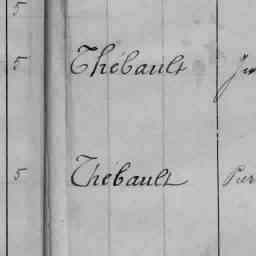 5
5 Thébault
5 Thébault Pier